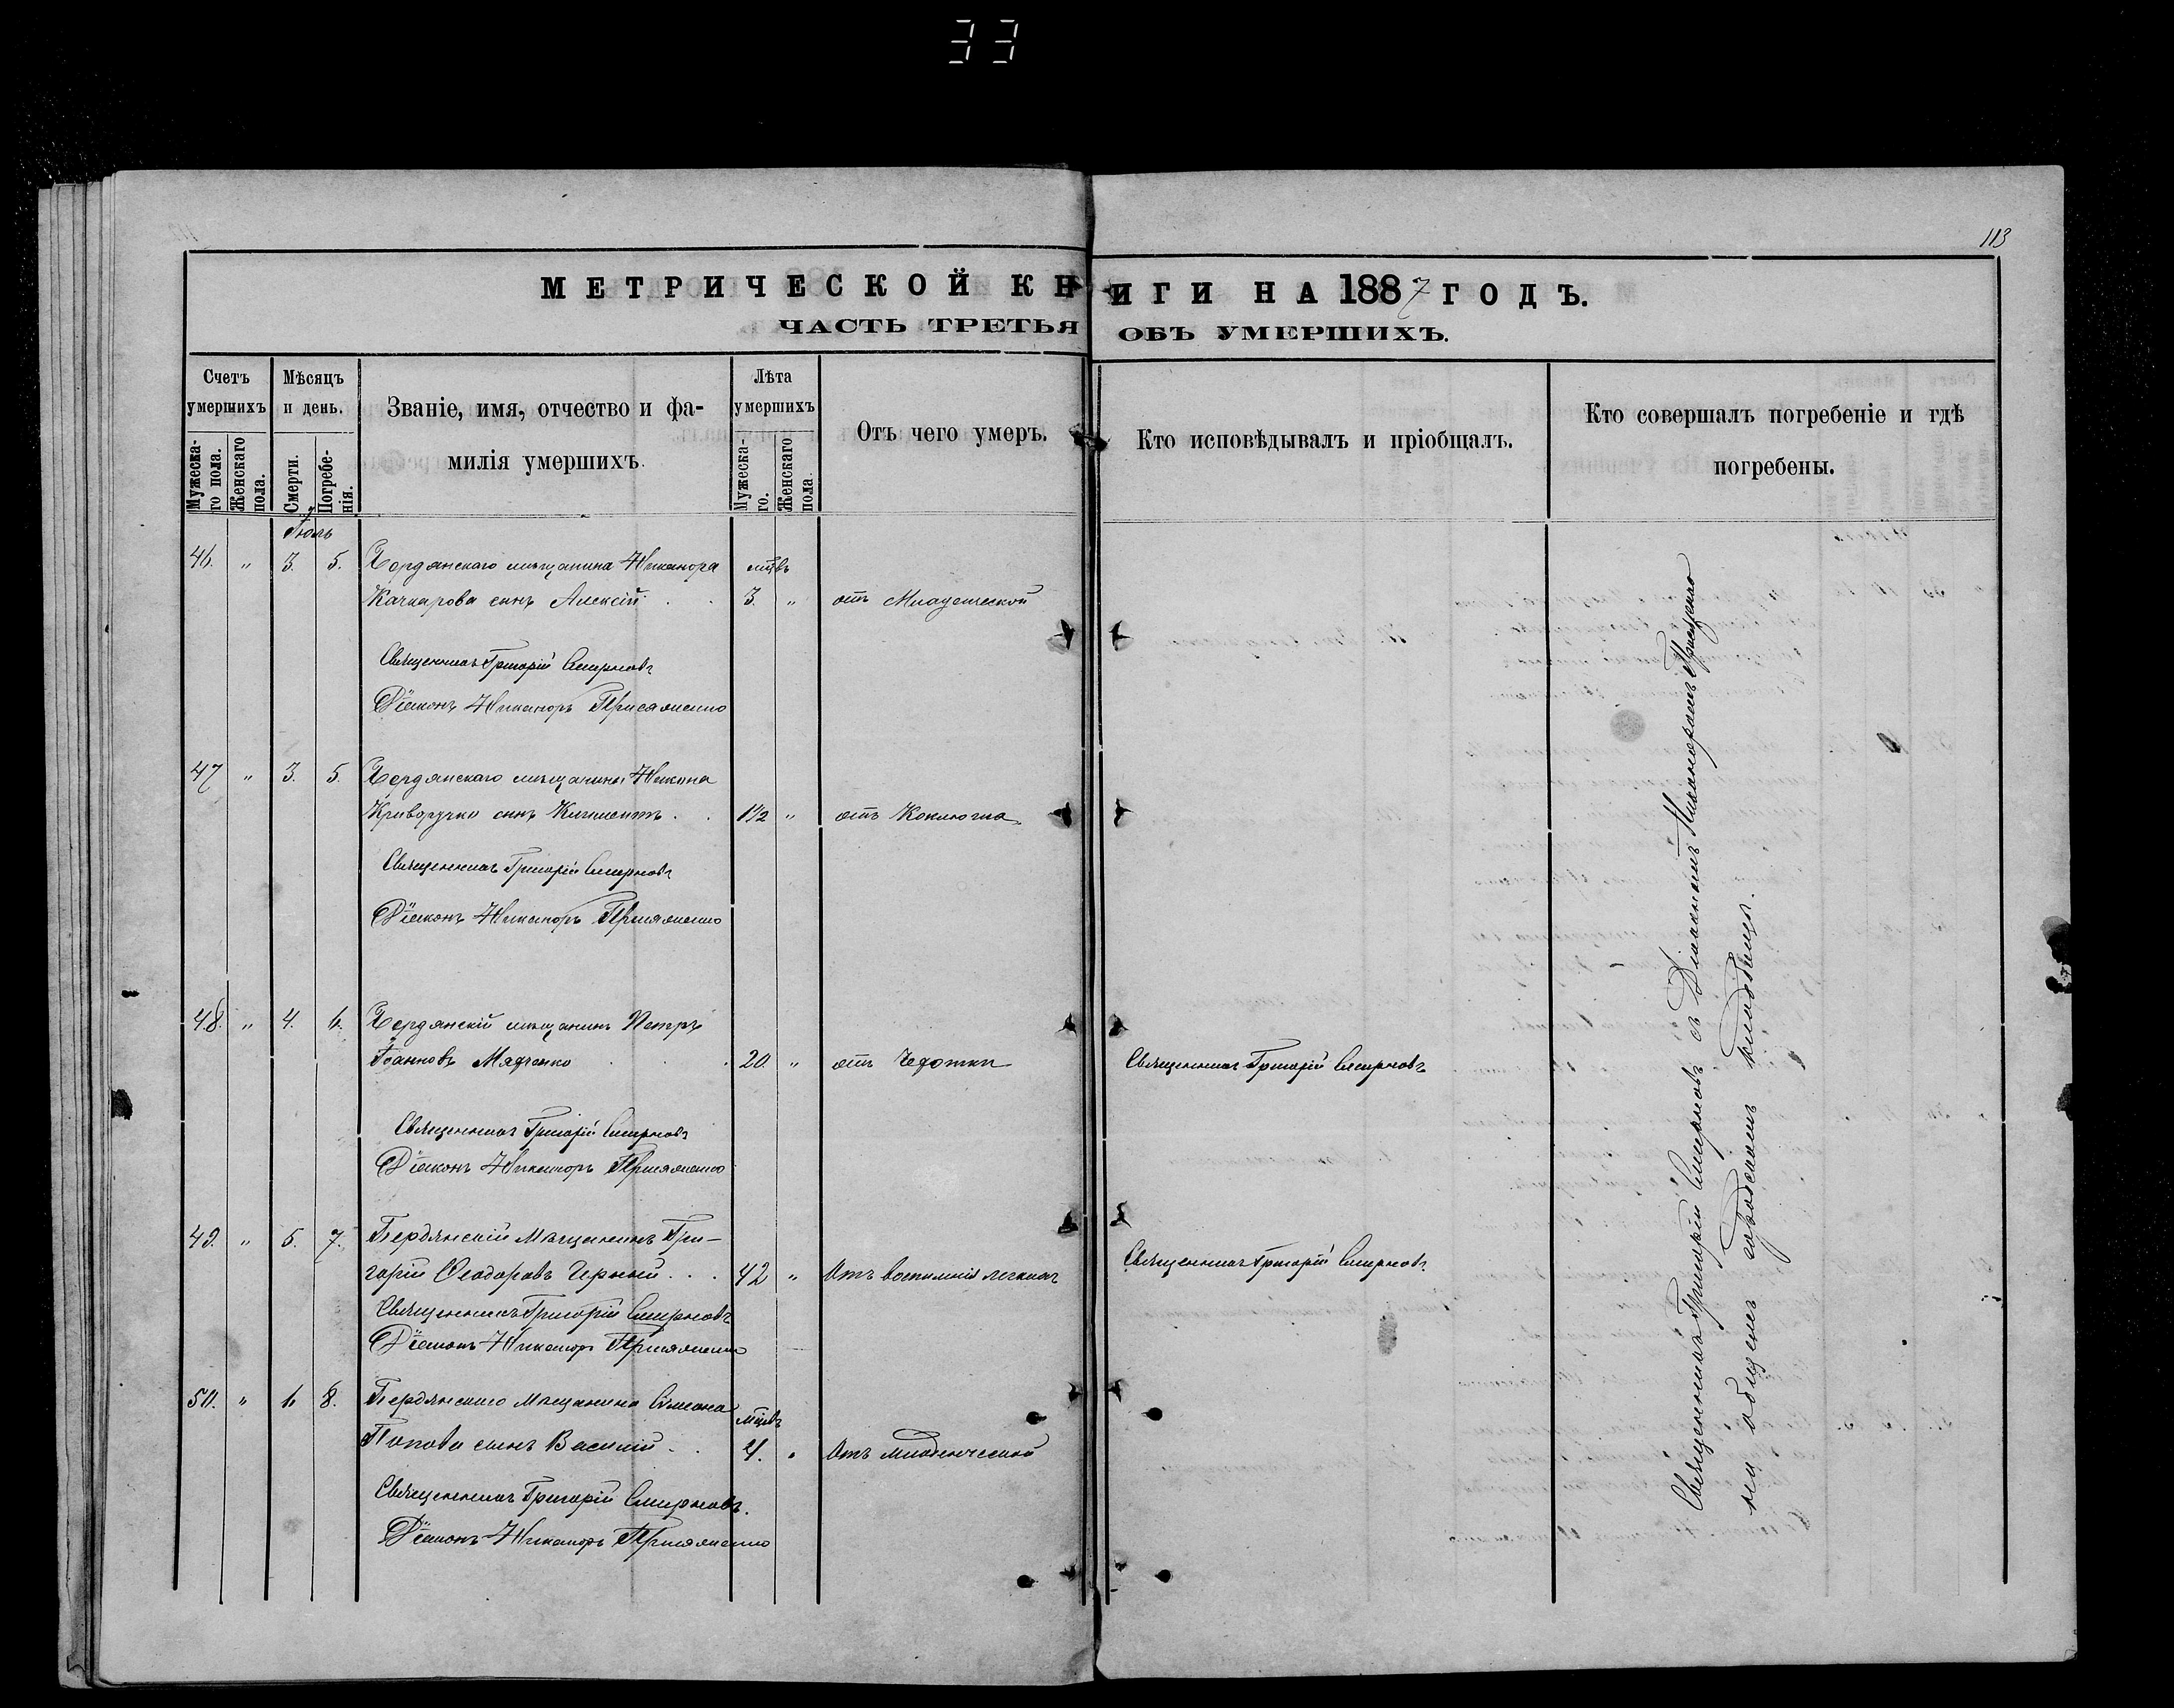 33
113
МЕТРИЧЕСКОЙ КНИГИ НА 1887 ГОДЪ.
ЧАСТЬ ТРЕТЬЯ ОБЪ УМЕРШИХЪ.
Счетъ умершихъ
Мужеска-го пола.
Женскаго пола.
Мѣсяцъ и день.
Смерти.
Погребе-нія.
Званіе, имя, отчество и фа-
милія умершихъ.
Лѣта умершихъ
Мужеска-го.
Женскаго пола.
Отъ чего умеръ.
Кто исповѣдывалъ и пріобщалъ.
Кто совершалъ погребеніе и гдѣ
погребены.
Іюль
46. " 3. 5. Бердянскаго мѣщанина Никанора мцвъ
сынъ Алексій . . 3. " отъ Младенческой
Священникъ Григорій Смирновъ
Діаконъ Никаноръ Присяженко
47 " 3. 5. Бердянскаго мѣщанина Никона
Криворучко сынъ Климентъ . . 1½ " отъ Коклюша
Священникъ Григорій Смирновъ
Діаконъ Никаноръ Присяженко
48. " 4. 6. Бердянскій мѣщанинъ Петръ
Іоанновъ . . . 20. " отъ Чахотки Священникъ Григорій Смирновъ
Священникъ Григорій Смирновъ
Діаконъ Никаноръ Присяженко
49. " 5. 7. Бердянскій Мѣщанинъ Гри-
горій Ѳеодоровъ Черный . . . 42 " Отъ воспаленія легкихъ Священникъ Григорій Смирновъ
Священникъ Григорій Смирновъ
Діаконъ Никаноръ Присяженко
50. " 6 8. Бердянскаго Мѣщанина Симеона мцвъ
Попова сынъ Василій . . 4. " Отъ младенческой
Священникъ Григорій Смирновъ.
Діаконъ Никаноръ Присяженко
Священникъ Григорій Смирновъ съ Діакономъ Никаноромъ Присяженко
на общемъ городскомъ кладбищѣ.